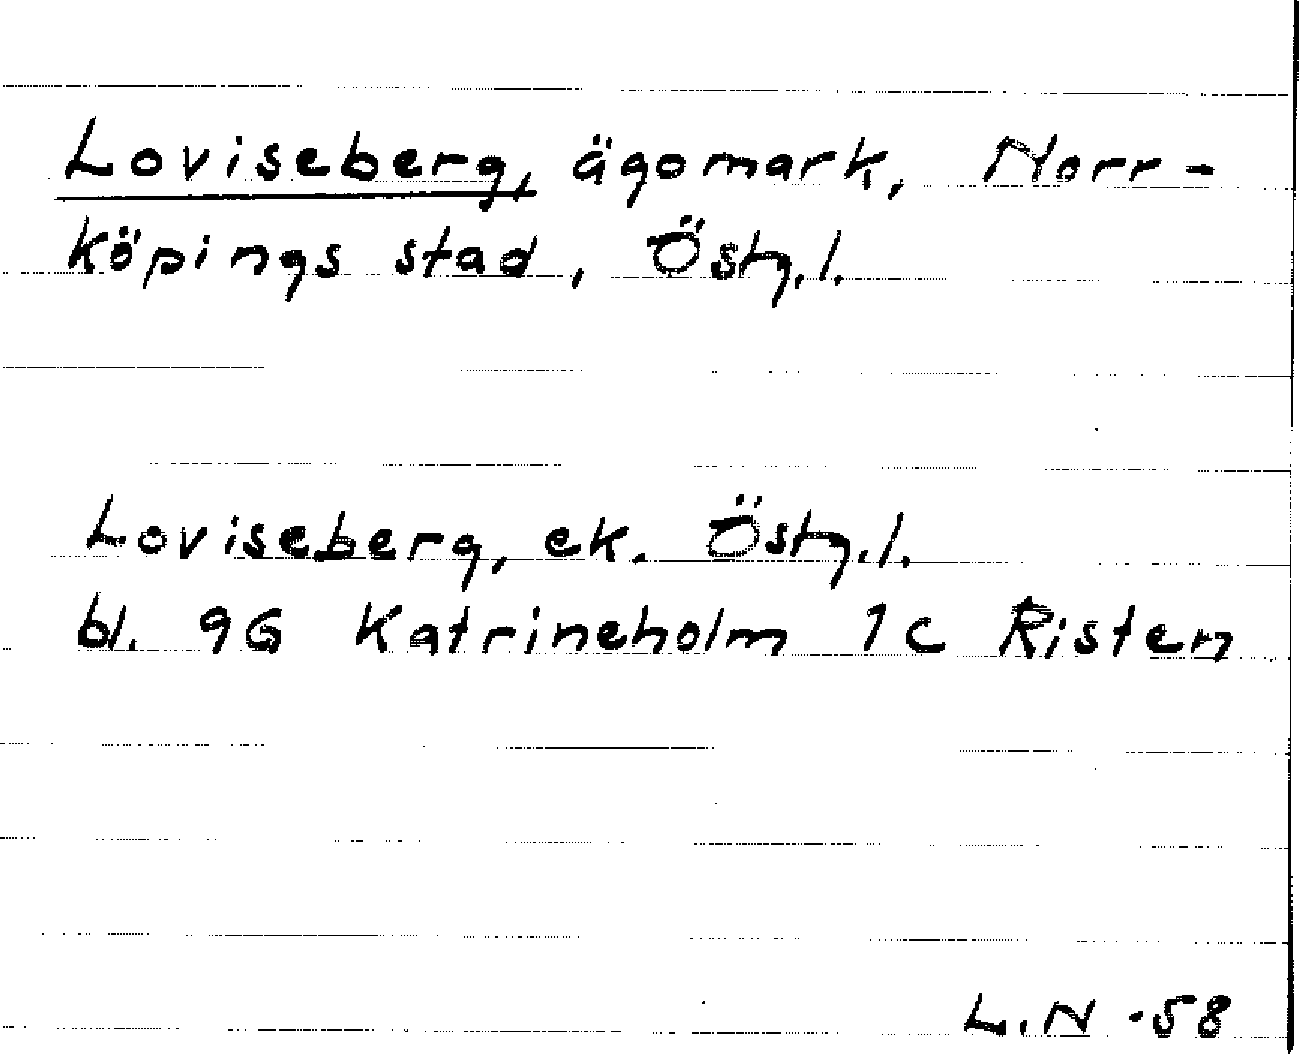 Loviseberg, ägomark, Norr-
köpings stad, Östg.l.
Loviseberg, ek. Östg.l.
bl. 9G Katrineholm 1c Risten
L.N -58